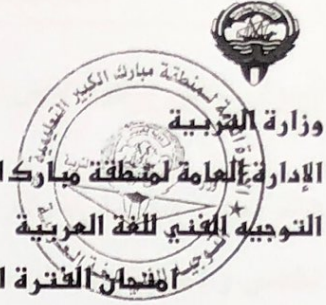 وزارة التربية
الإدارة العامة لمنطقة مبارك ا
التوجيه الفني للغة العربية
امتحان الفترة ا
لمنطقة مبارك الكبير التعليمية